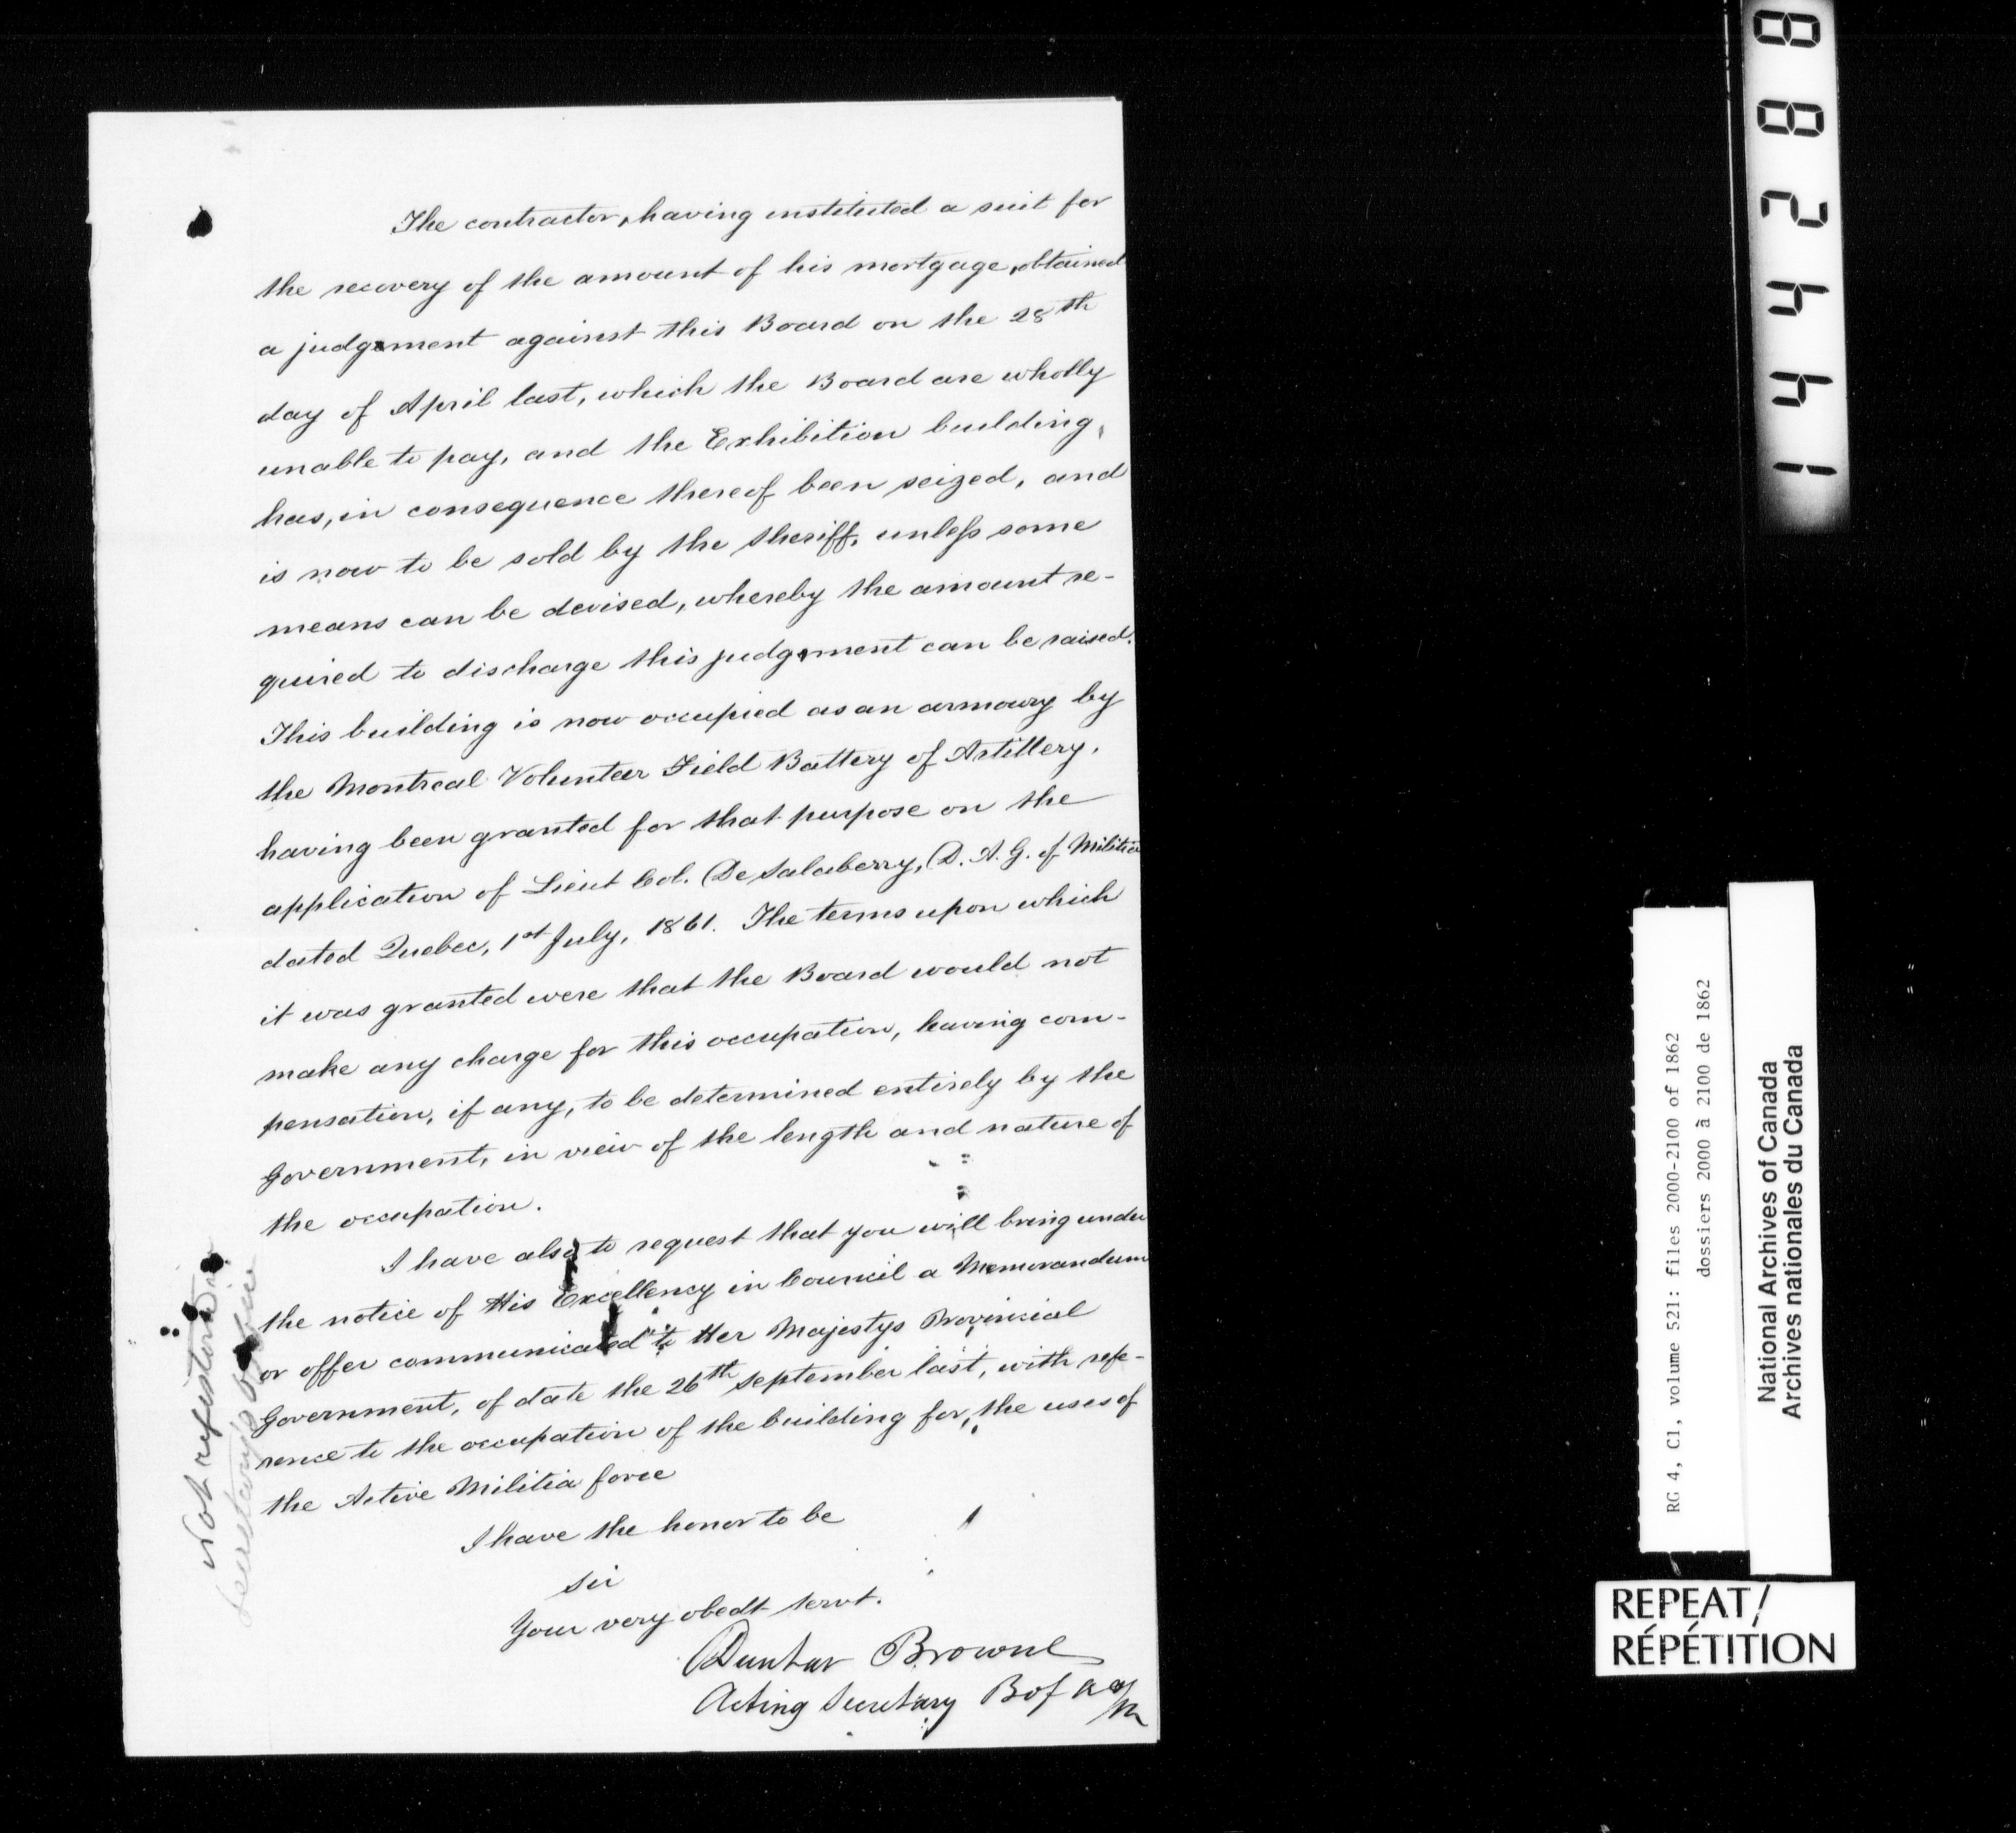 The contractor, having instituted a suit for
the recovery of the amount of his mortgage, obtained
a judgement against this Board on the 28th
day of April last, which the Board are wholly
unable to pay, and the Exhibition building,
has, in consequence thereof been seized, and
is now to be sold by the Sheriff, unless some
means can be devised, whereby the amount re-
quired to discharge this judgement can be raised.
This building is now occupied as an armoury by
the Montreal Volunteer Field Battery of Artillery,
having been granted for that purpose on the
application of Lieut Col. De Salaberry, D. A. G. of Militia
dated Quebec, 1st July, 1861. The terms upon which
it was granted were that the Board would not
make any charge for this occupation, leaving com-
pensation, if any, to be determined entirely by the
Government, in view of the length and nature of
the occupation.
I have also to request that you will bring under
the notice of His Excellency in Council a Memorandum
or offer communicated to Her Majestys Provincial
Government, of date the 26th September last, with refe-
rence to the occupation of the building for the uses of
the Active Militia force
I have the honor to be
Sir
Your very obedt servt.
Dunbar Browne
Acting Secretary B of A & M
Not registered in
Secretary's Office
8 8 2 4 4 1
RG 4, C1, volume 521: files 2000-2100 of 1862
dossiers 2000 à 2100 de 1862
National Archives of Canada
Archives nationales du Canada
REPEAT/
RÉPÉTITION